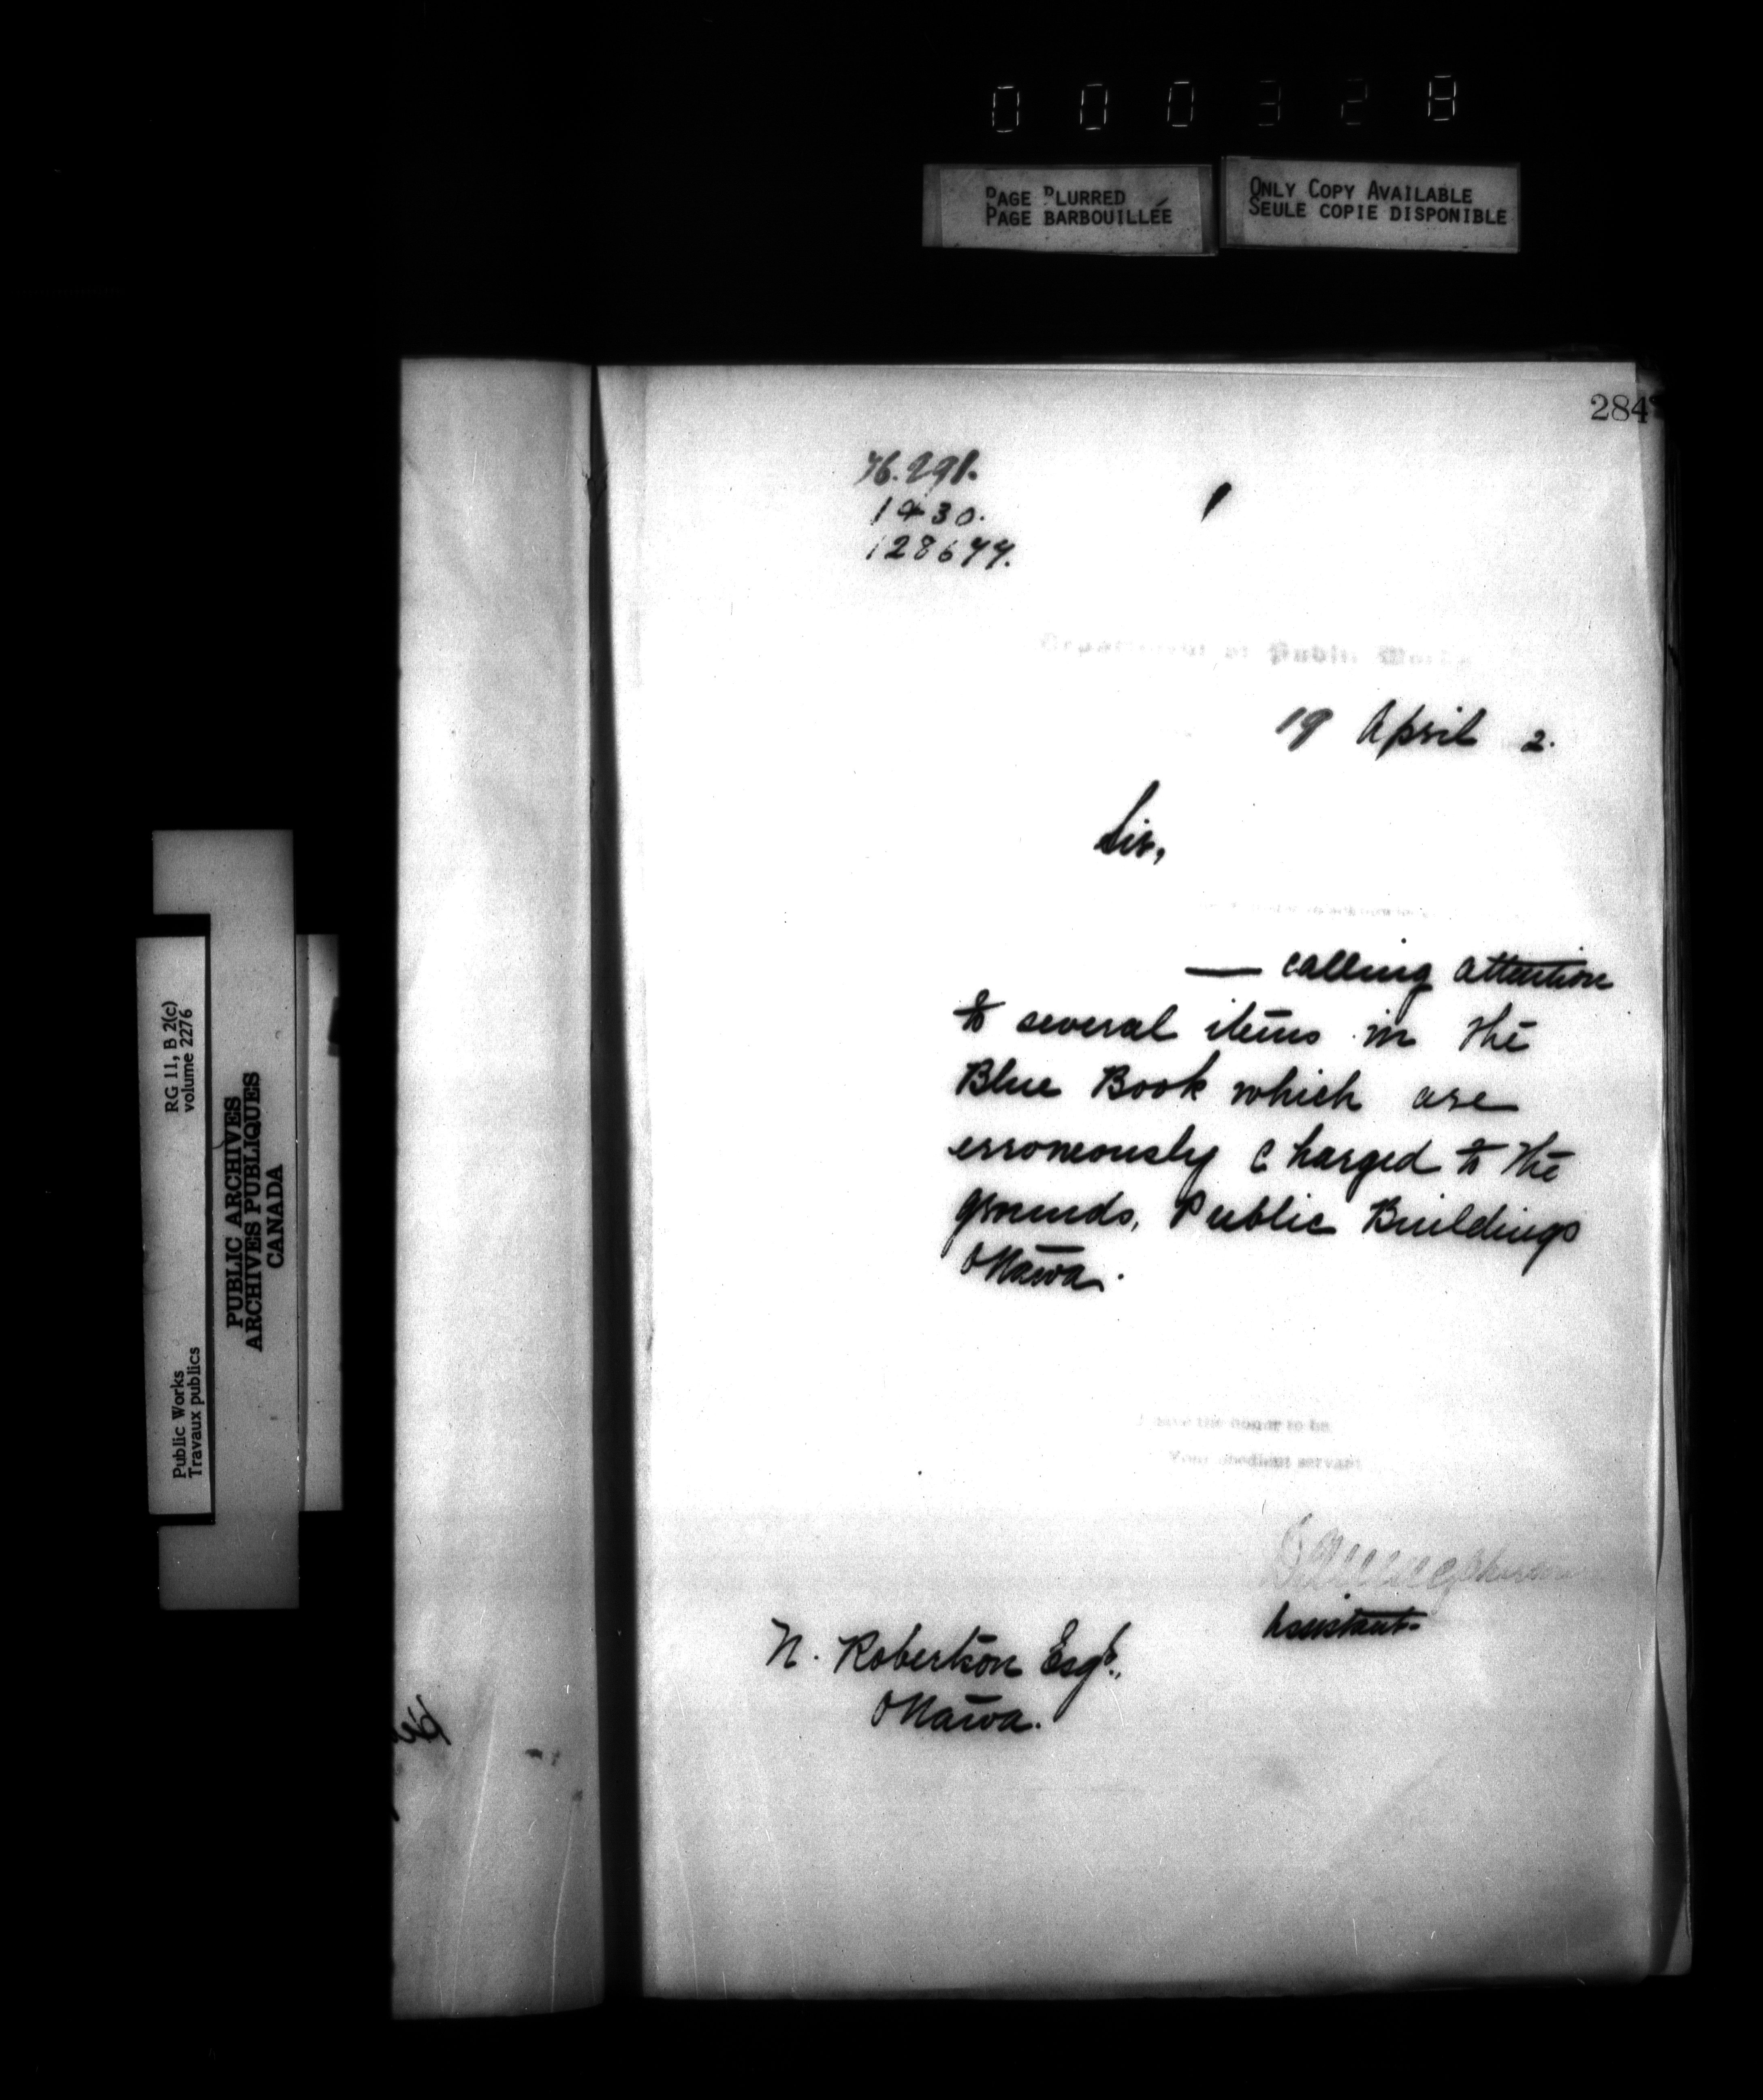 000328
PAGE BLURRED
PAGE BARBOUILLÉE
ONLY COPY AVAILABLE
SEULE COPIE DISPONIBLE
284
76.291.
1430.
128677.
Department of Public Works
19 April 2.
Sir,
— calling attention
to several items in the
Blue Book which are
erroneously charged to the
grounds, Public Buildings
Ottawa.
I have the honor to be
Your obedient servant
Assistant
N. Robertson Esqr.,
Ottawa.
RG 11, B 2(c)
volume 2276
PUBLIC ARCHIVES
ARCHIVES PUBLIQUES
CANADA
Public Works
Travaux publics